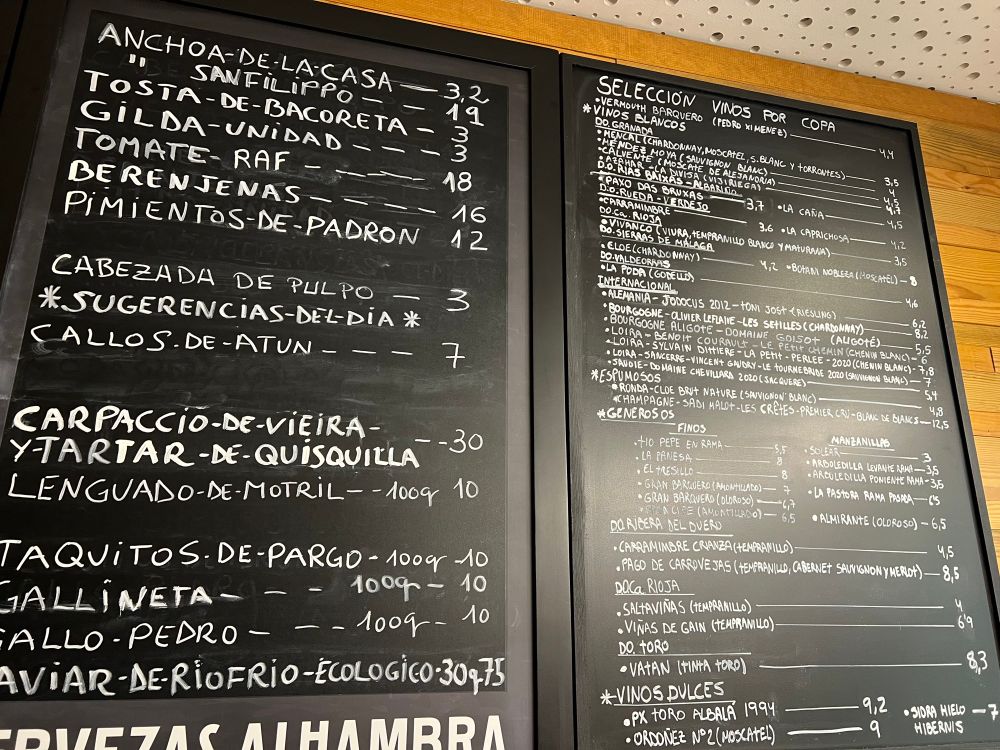 ANCHOA-DE-LA-CASA — 3,2
" SANFILIPPO - - 19
TOSTA-DE-BACORETA - 3
GILDA-UNIDAD - - - 3
TOMATE-RAF - - 18
BERENJENAS — 16
PIMIENTOS-DE-PADRON 12
CABEZADA DE PULPO — 3
*SUGERENCIAS-DEL-DÍA*
CALLOS-DE-ATUN - - - 7
CARPACCIO-DE-VIEIRA-
Y-TARTAR-DE-QUISQUILLA --30
LENGUADO-DE-MOTRIL--100gr 10
TAQUITOS-DE-PARGO-100gr-10
GALLINETA - - - 100gr - 10
GALLO-PEDRO - - - 100gr- 10
AVIAR-DE-RIOFRIO-ECOLOGICO-30g-75
ERVEZAS ALHAMBRA
SELECCIÓN VINOS POR COPA
•VERMOUTH BARQUERO (PEDRO XIMENEZ) — 4,4
*VINOS BLANCOS
DO.GRANADA
•MENCAL (CHARDONNAY, MOSCATEL, S.BLANC Y TORRONTES) — 3,5
•MÉNDEZ MOYA (SAUVIGNON BLANC) — 4
•CALVENTE (MOSCATE DE ALEJANDRIA) — 4,5
•AZAHAR-LA DIVISA (VIJIRIEGA) — 4,7
D.O.RIAS BAIXAS-ALBARIÑO
•PAXO DAS BRUXAS — 3,7 •LA CAÑA — 4,5
D.O.RUEDA-VERDEJO
•CARRAMIMBRE — 3,6 •LA CAPRICHOSA — 4,2
DO.Ca. RIOJA
•VIVANCO (VIURA, TEMPRANILLO BLANCO Y MATURANA) — 3,5
DO.SIERRAS DE MÁLAGA
•CLOE (CHARDONNAY) — 4,2 •BOTANI NOBLEZA (MOSCATEL) — 8
DO.VALDEORRAS
•LA PODA (GODELLO) — 4,6
INTERNACIONAL
•ALEMANIA-JODOCUS 2012-TONI JOST (RIESLING) — 6,2
•BOURGOGNE-OLIVIER LEFLAIVE-LES SETILLES (CHARDONNAY) — 8,2
•BOURGOGNE ALIGOTÉ-DOMAINE GOISOT (ALIGOTÉ) — 5,5
•LOIRA-BENOIT COURAULT-LE PETIT CHEMIN (CHENIN BLANC) — 6
•LOIRA-SYLVAIN DITTIERE-LA PETIT-PERLEE-2020 (CHENIN BLANC) - 7,8
•LOIRA-SANCERRE-VINCENT GAUDRY-LE TOURNEBRIDE 2020 (SAUVIGNON BLANC) — 7
•SAVOIE-DOMAINE CHEVILLARD 2020 (JACQUERE) — 5,4
*ESPUMOSOS
•RONDA-CLOE BRUT NATURE (SAUVIGNON BLANC) — 4,8
•CHAMPAGNE-SADI MALOT-LES CRÊTES-PREMIER CRU-BLANC DE BLANCS — 12,5
*GENEROSOS
FINOS
•TIO PEPE EN RAMA — 5,5
•LA PANESA — 8
•EL TRESILLO — 8
•GRAN BARQUERO (AMONTILLADO) — 7
•GRAN BARQUERO (OLOROSO) — 6,7
(AMONTILLADO) — 6,5
MANZANILLAS
•SOLEAR — 3
•ARBOLEDILLA LEVANTE RAMA — 3,5
•ARBOLEDILLA PONIENTE RAMA — 3,5
•LA PASTORA RAMA PASADA — 6,5
•ALMIRANTE (OLOROSO) — 6,5
DO.RIBERA DEL DUERO
•CARRAMIMBRE CRIANZA (TEMPRANILLO) — 4,5
•PAGO DE CARROVEJAS (TEMPRANILLO, CABERNET SAUVIGNON Y MERLOT) — 8,5
DO.Ca RIOJA
•SALTAVIÑAS (TEMPRANILLO) — 4
•VIÑAS DE GAIN (TEMPRANILLO) — 6'9
DO. TORO
•VATAN (TINTA TORO) — 8,3
*VINOS DULCES
•PX TORO ALBALÁ 1994 — 9,2
•ORDOÑEZ Nº2 (MOSCATEL) — 9
•SIDRA HIELO HIBERNIS — 7